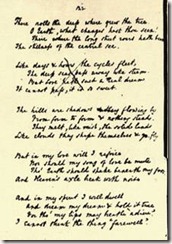 There rolls the deep where grew the tree
O Earth, what changes hast thou seen!
There where the long street roars hath been
The stillness of the central sea.
Like days & hours the cycles fleet,
The deep seas pass away like steam:
But love hath such a dream
It cannot pass, it is so sweet.
The hills are shadows flowing by
From form to form & nothing stands,
They melt, like mist, the solid lands
Like clouds they shape themselves & go.
But in my love will I rejoice
Nor should my song of love be mute
Tho' Earth should shake beneath my foot
And Heaven's axle break with noise
And in my spirit I will dwell
And dream my dream & hold it true
For tho' my lips may breathe adieu
I cannot think the thing farewell